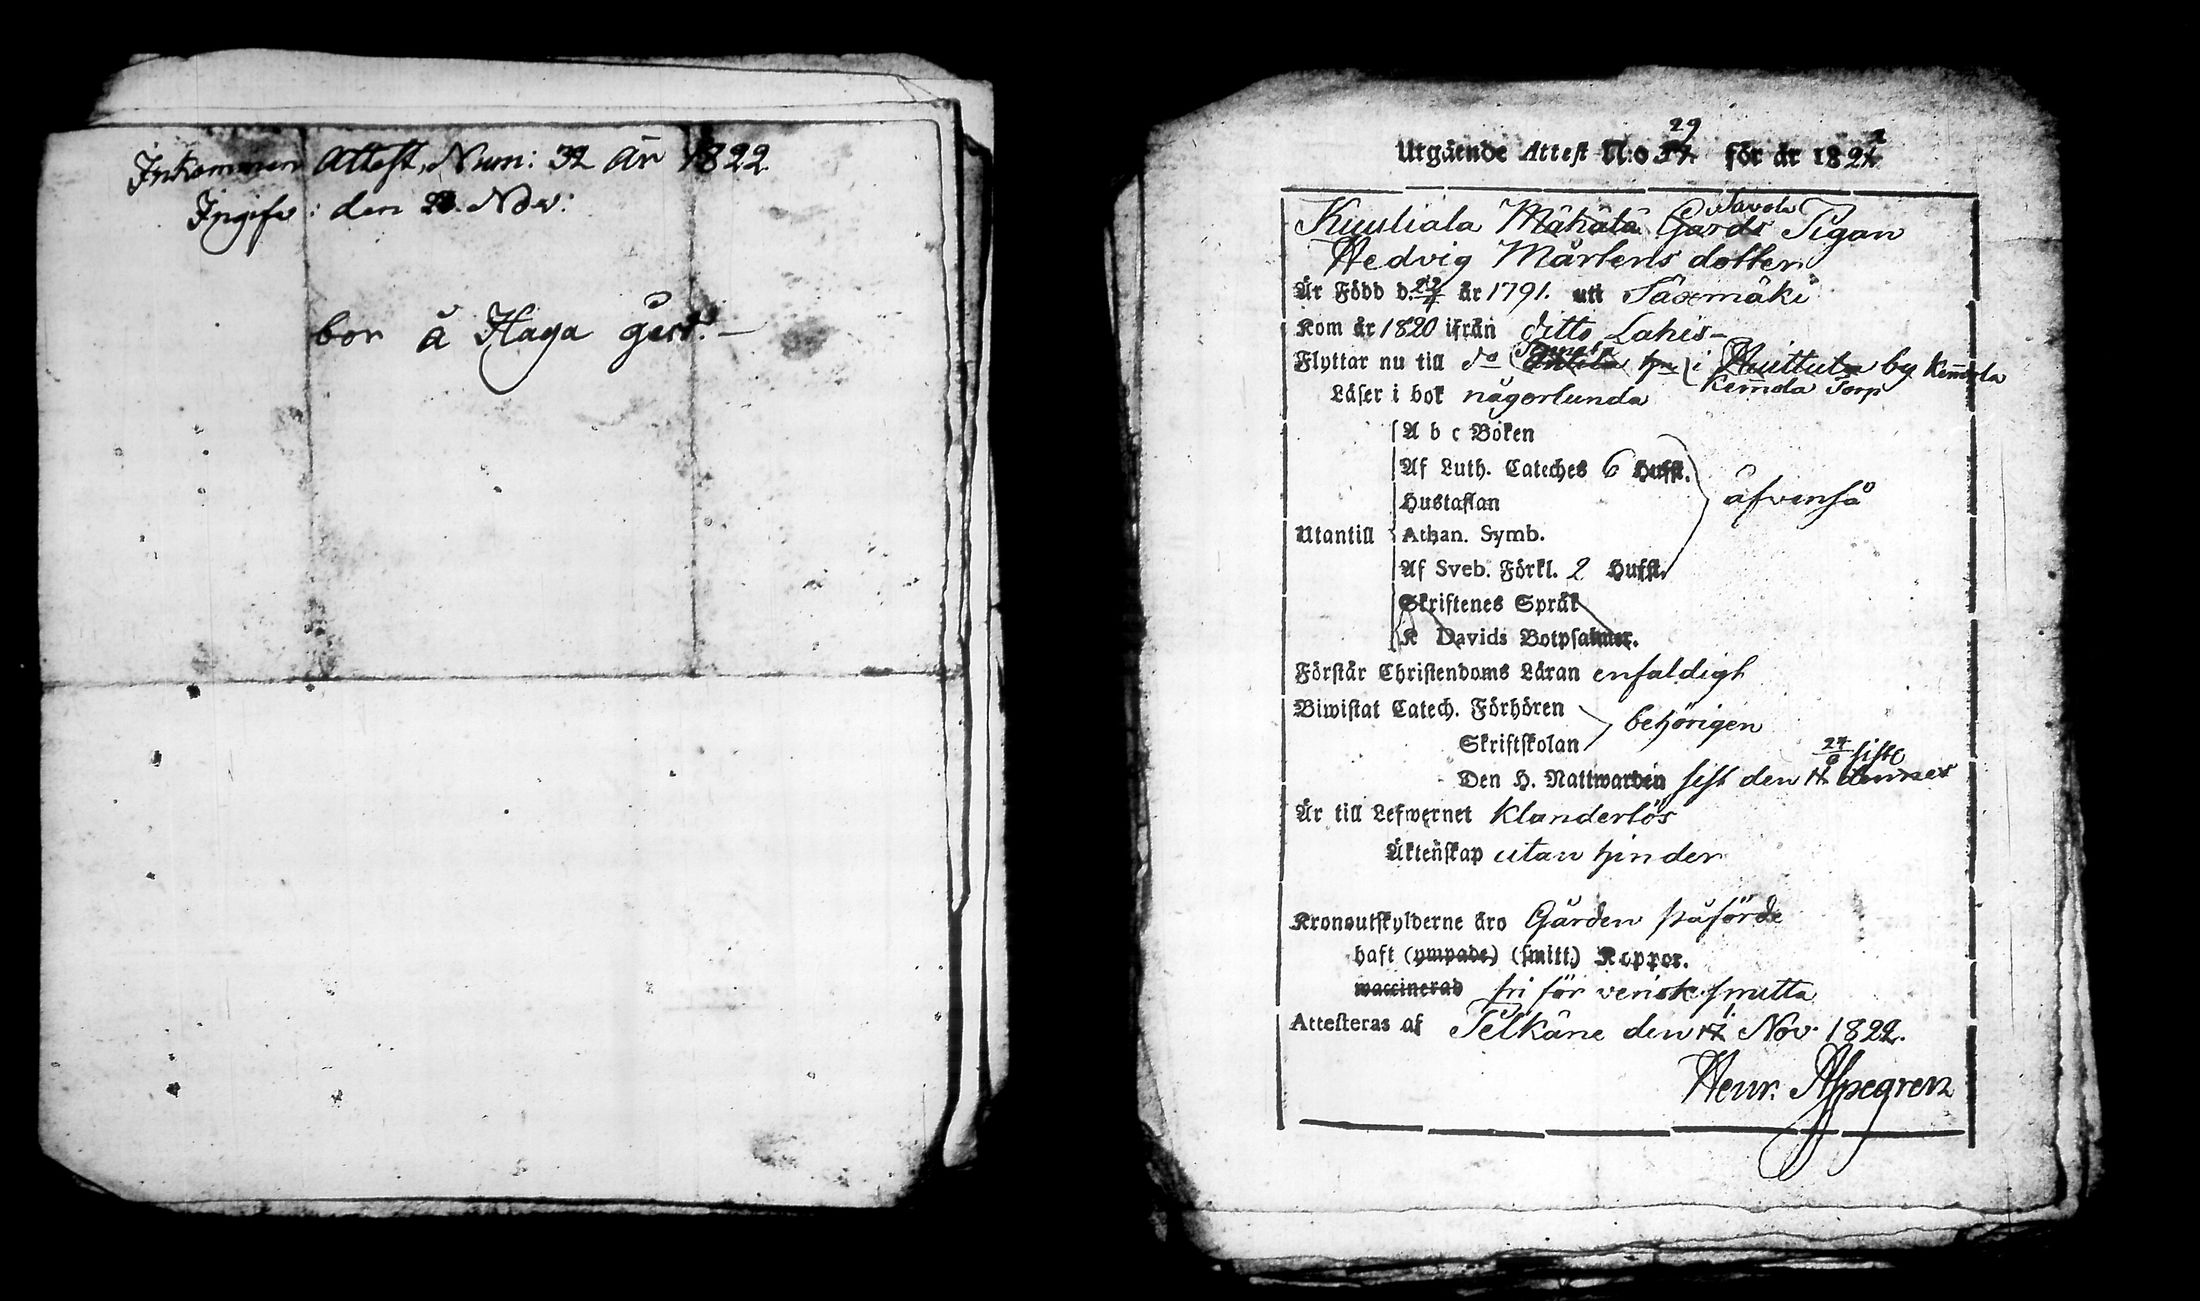 Inkommen Attest, Num: 32 År 1822
Ingifv: den 23. Nov:
bor å Haga gård.
29
Utgående Attest N:o för år 1822
Savola
Kuuliala Mäkälä Gårds Pigan
Hedvig Mårtens dotter
Är Född d. år 1791. uti Säxmäki
Kom år 1820 ifrån ditto Lahis
Flyttar nu till do i Huittula by Kem̄ola
Kem̄ola Torp
Läser i bok någorlunda
A b c Boken
Af Luth. Cateches 6 Hufst.
Hustaflan
åfvenså
Utantill Athan. Symb.
Af Sveb. Förkl. 2 Hufst.
Skriftenes Språk
K Davids Botpsalmer.
Förstår Christendoms Läran enfaldigt
Biwistat Catech. Förhören
behörigen
Skriftskolan
24/6 siste
Den H. Nattwarden sist den dennes
Är till Lefwernet klanderlös
Äktenskap utan hinder
Kronoutskylderne äro Gården påförde
haft (ympade) (smitt.) Koppor.
waccinerad fri för venisk smitta
Attesteras af Pelkäne den 17 Nov. 1822.
Henr. Aspegren